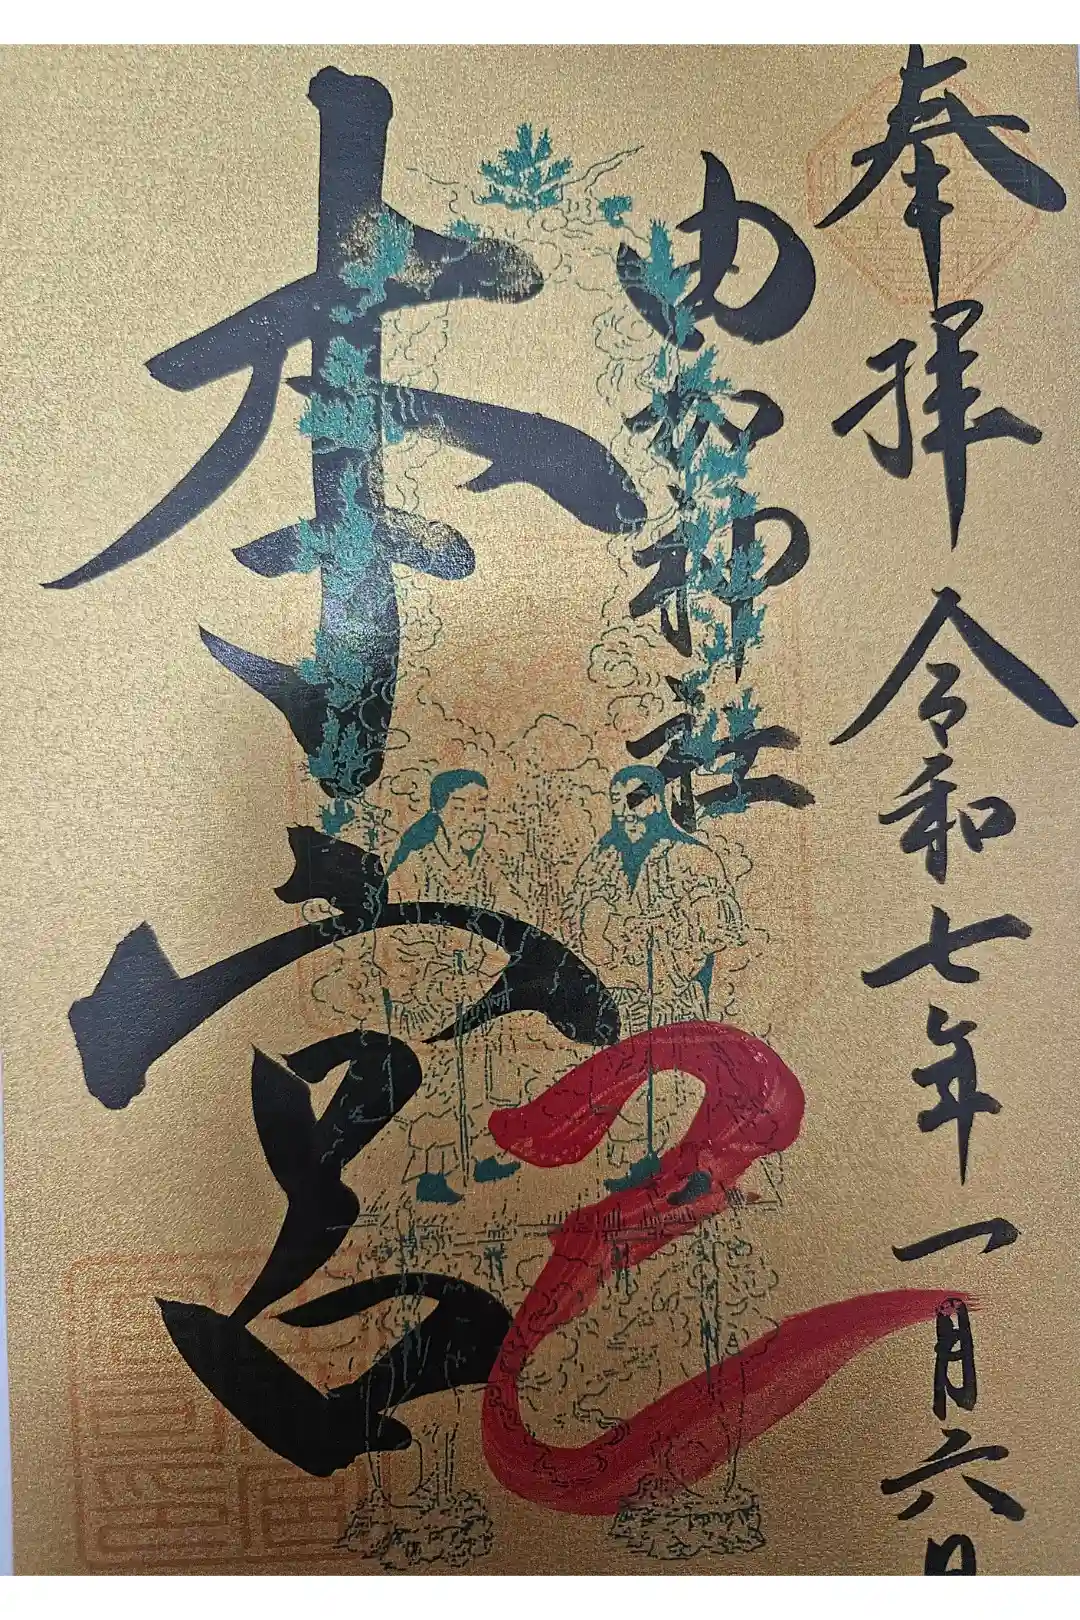 奉拝 令和七年一月六日
由加神社
本宮